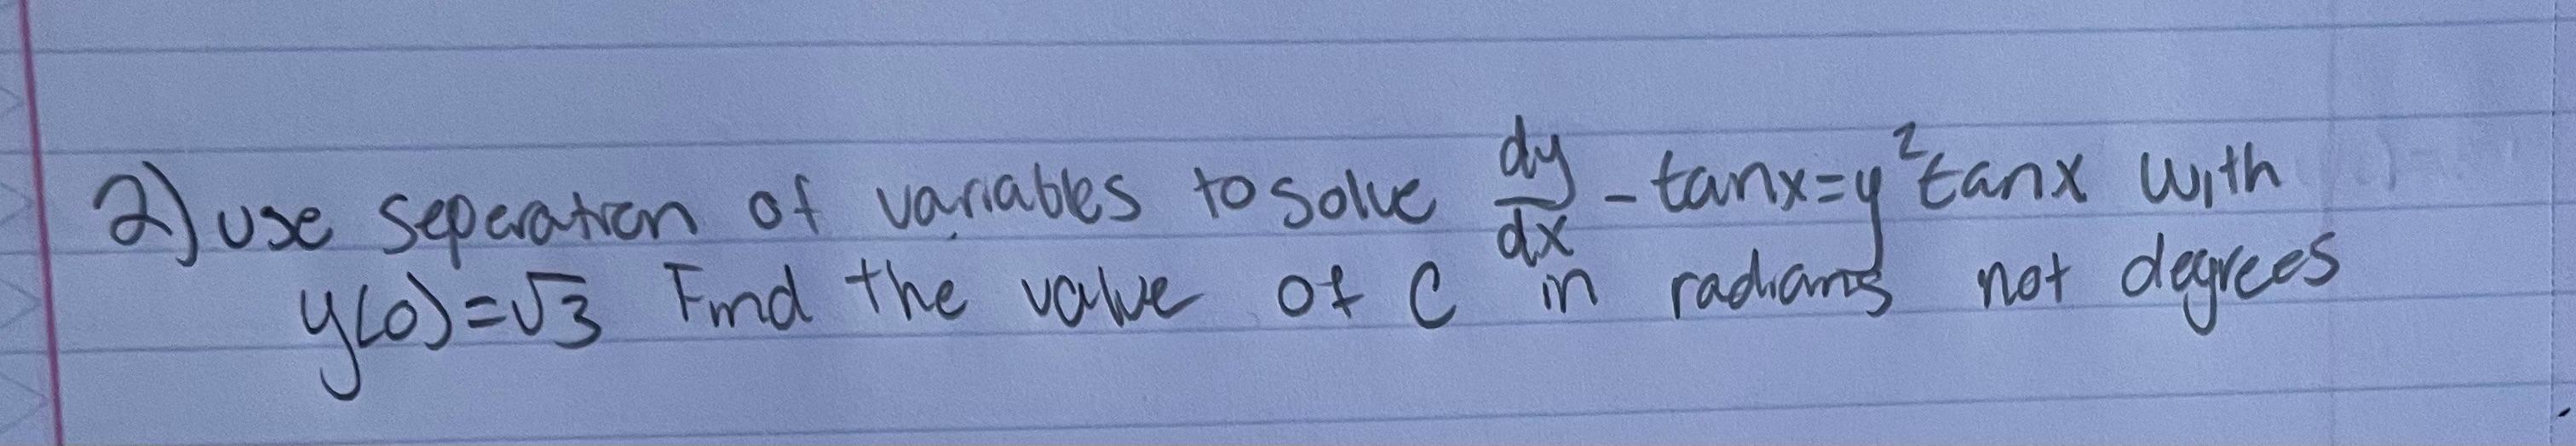 2) use seperation of variables to solve dy/dx - tanx = y² tanx with
y(0) = √3 Find the value of C in radians not degrees